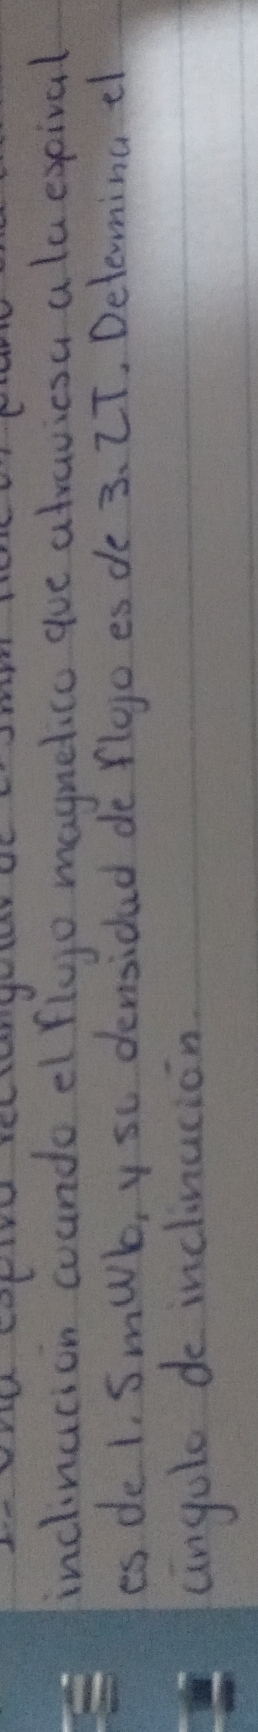 1.- Una espira rectangular de
inclinación cuando el flujo magnetico que atraviesa a la espiral
es de 1.5 mWb, y su densidad de flujo es de 3.2T. Determina el
ángulo de inclinación.